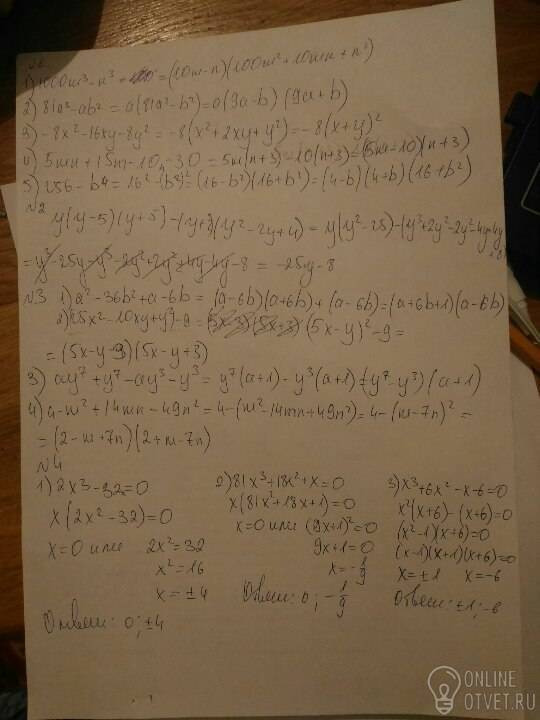 1) 1000m³-n³ = (10m-n)(100m²+10mn+n²)
2) 81a³-ab² = a(81a²-b²)=a(9a-b)(9a+b)
3) -8x²-16xy-8y² = -8(x²+2xy+y²)=-8(x+y)²
4) 5mn+15m-10n-30 = 5m(n+3)-10(n+3)=(5m-10)(n+3)
5) 256-b⁴=16²-(b²)²=(16-b²)(16+b²)=(4-b)(4+b)(16+b²)
№2
y(y-5)(y+5)-(y+2)(y²-2y+4) = y(y²-25)-(y³+2y²-2y²-4y+4y
+8)
=y³-25y-y³-2y²+2y²+4y-4y-8 = -25y-8
№3 1) a²-36b²+a-6b= (a-6b)(a+6b)+(a-6b)=(a+6b+1)(a-6b)
2) 25x²-10xy+y²-9 = (5x-y)²-9=
= (5x-y-3)(5x-y+3)
3) ay⁷+y⁷-ay³-y³= y⁷(a+1)-y³(a+1)=(y⁷-y³)(a+1)
4) 4-m²+14mn-49n²=4-(m²-14mn+49n²)=4-(m-7n)²=
=(2-m+7n)(2+m-7n)
№4
1) 2x³-32=0
x(2x²-32)=0
x=0 или 2x²=32
x²=16
x=±4
Ответ: 0; ±4
2) 81x³+18x²+x=0
x(81x²+18x+1)=0
x=0 или (9x+1)²=0
9x+1=0
x=-1/9
Ответ: 0; -1/9
3) x³+6x²-x-6=0
x²(x+6)-(x+6)=0
(x²-1)(x+6)=0
(x-1)(x+1)(x+6)=0
x=±1 x=-6
Ответ: ±1; -6
ONLINE
OTVET.RU